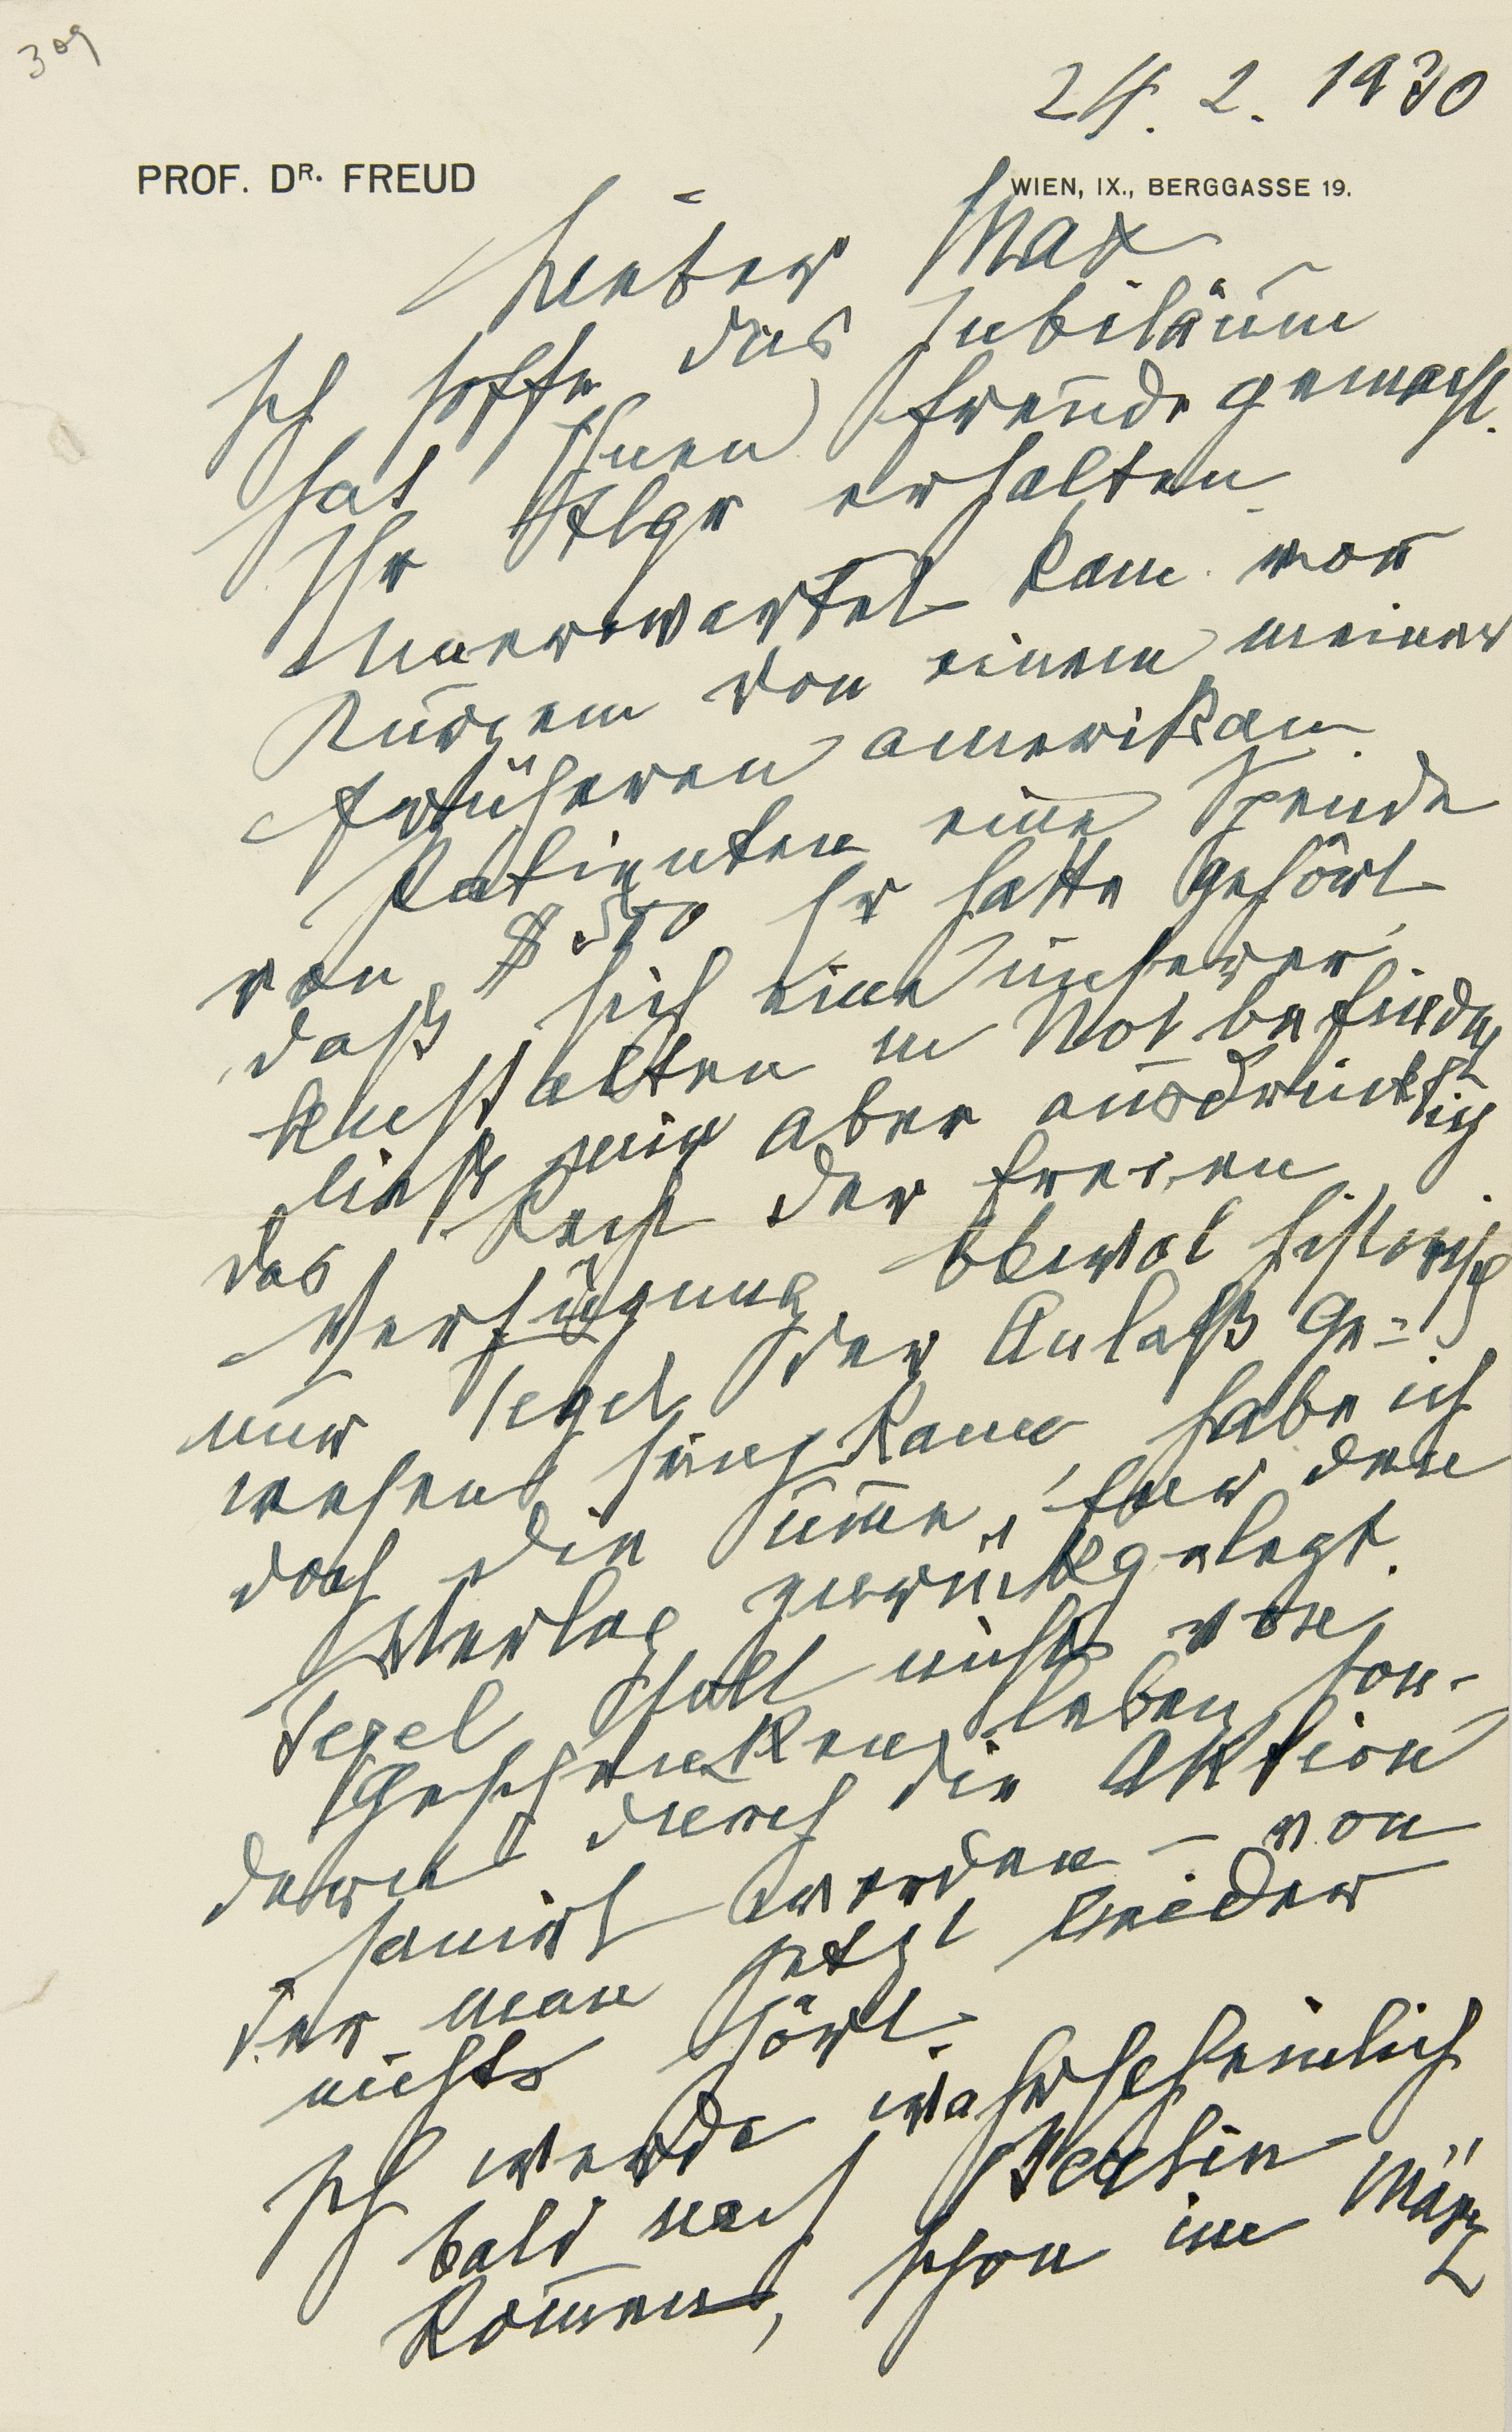 309
24. 2. 1930
PROF. DR. FREUD
WIEN, IX., BERGGASSE 19.
Lieber Max
Ich hoffe, das Jubiläum
hat Ihnen Freude gemacht.
Ihr Tlgr erhalten.
Unerwartet kam vor
Kurzem von einem meiner
früheren amerikan.
Patienten eine Spende
von $ 500 Er hatte gehört
daß sich eine unserer
Anstalten in Not befindet
ließ mir aber ausdrücklich
das Recht der freien
Verfügung. Obwol historisch
nur Tegel der Anlaß ge-
wesen sein kann, habe ich
doch die Summe für den
Verlag zurückgelegt.
Tegel soll nicht von
Geschenken leben, son-
dern durch die Aktion
sanirt werden – von
der man jetzt leider
nichts hört.
Ich werde wahrscheinlich
bald nach Berlin
kommen, schon im März